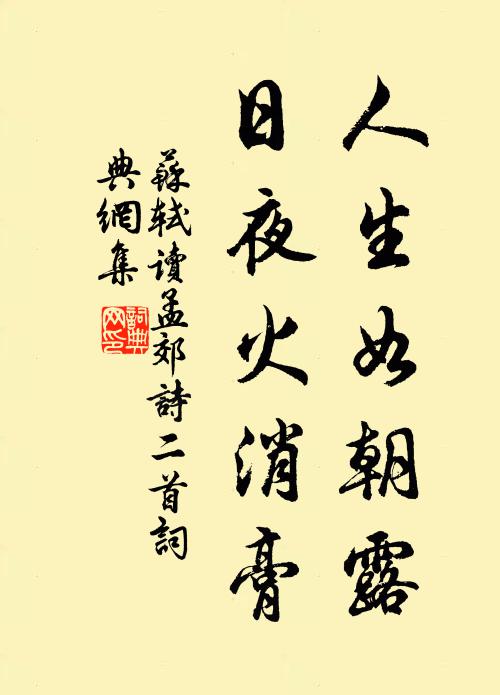 人生如朝露
日夜火消膏
蘇軾读孟郊詩二首詞
典網集
詞典
网印